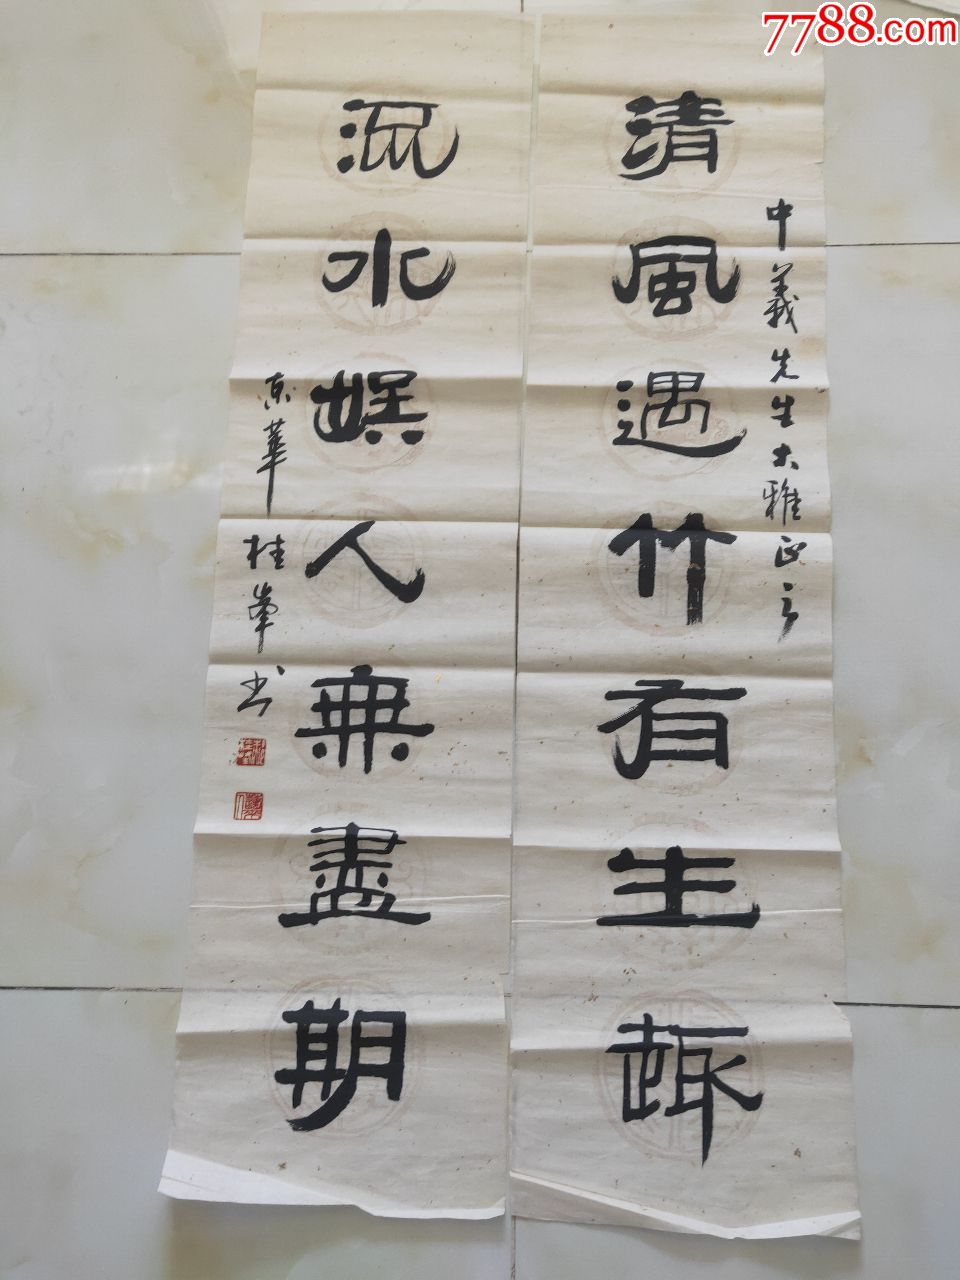 7788.com
中義先生大雅正之
清風遇竹有生趣
流水娱人無盡期
京華桂峯书